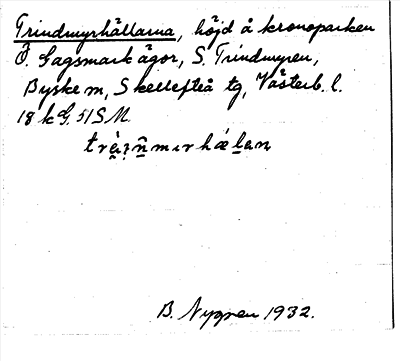 Trindmyrhällarna, höjd å kronoparken
Ö. Gagsmark ägor, S. Trindmyren,
Byske sn, Skellefteå tg, Västerb. l.
18 k G. 51 S M.
B. Nygren 1932.